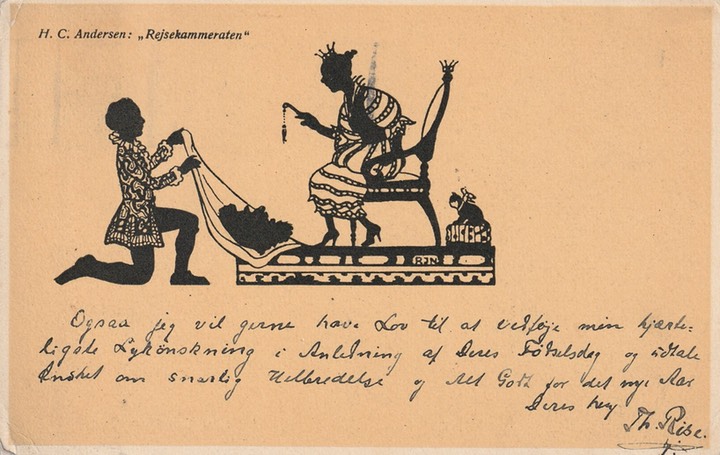 H. C. Andersen: „Rejsekammeraten“
RJN
Ogsaa jeg vil gerne have Lov til at vedføje min hjærte-
ligste Lykönskning i Anledning af Deres Fødselsdag og udtale
Ønsket om snarlig Helbredelse og Alt Godt for det nye Aar
Deres
Th. Riise.